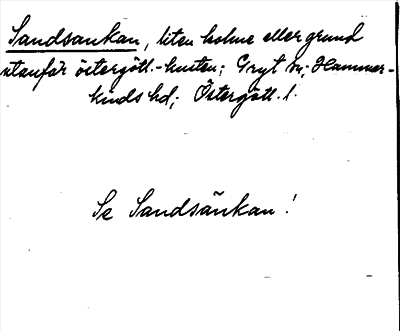 Sandsankan, liten holme eller grund
utanför östergötl.-kusten; Gryt sn; Hammer-
kinds hd; Östergötl. l.
Se Sandsänkan!